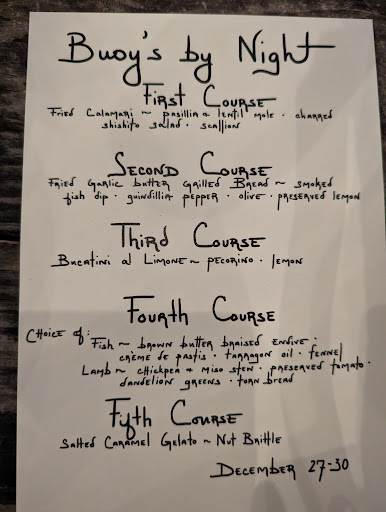 Buoy's by Night
First Course
Fried Calamari ~ pasillia & lentil mole · charred
shishito salad · scallion
Second Course
Fried Garlic butter Grilled Bread ~ smoked
fish dip · guindillia pepper · olive · preserved lemon
Third Course
Bucatini al Limone ~ pecorino · lemon
Fourth Course
Choice of:
Fish ~ brown butter braised endive ·
crème de pastis · tarragon oil · fennel
Lamb ~ chickpea & miso stew · preserved tomato ·
dandelion greens · torn bread
Fyfth Course
Salted Caramel Gelato ~ Nut Brittle
December 27-30